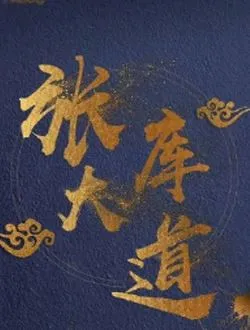 张
库
大
道